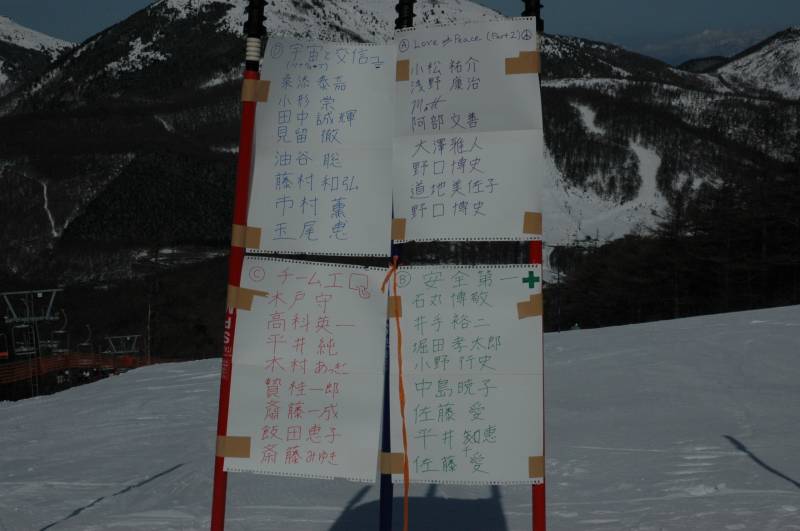 Ⓓ 宇宙と交信
桑添泰嘉
小杉 崇
田中誠輝
見留 徹
油谷 聡
藤村和弘
市村 薫
玉尾 恵
Ⓐ Love & Peace (Part 2)
小松 祐介
浅野 廣治
阿部 交善
大澤雅人
野口博史
道地美佐子
野口博史
Ⓒ チーム工口
木戸 守
高科英一
平井 純
木村あつこ
賛桂一郎
斎藤一成
飯田恵子
斎藤みゆき
Ⓑ 安全第一
石丸博敬
井手裕二
堀田孝太郎
小野行史
中島暁子
佐藤 愛
平井 知恵子
佐藤 愛